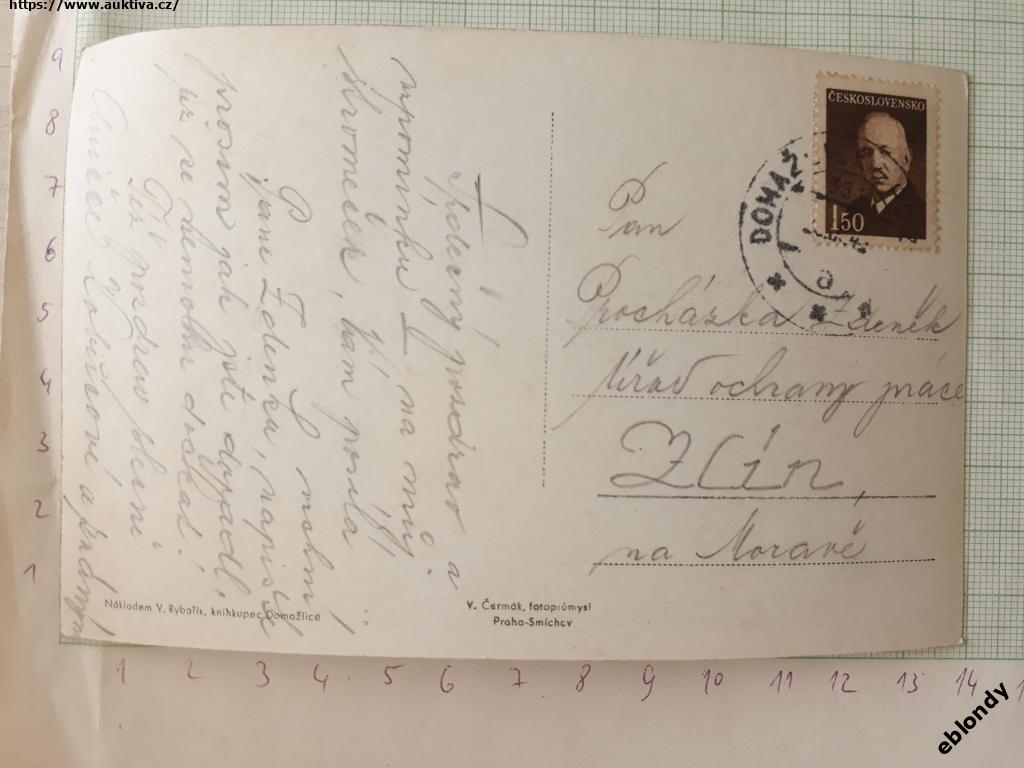 https://www.auktiva.cz/
ČESKOSLOVENSKO
1.50
DOMAŽ
Pan
Procházka Zdeněk
Úřad ochrany práce
Zlín,
na Moravě
Srdečný pozdrav a
vzpomínku na můj
stromeček, Vám posílá
S. mohni
Pane Zdenku, napište
prosím jak jste dojeli,
již se nemohu dočkat!
Též pozdrav slečně
a
Nákladem V. Rybařík, knihkupec Domažlice
V. Čermák, fotoprůmysl
Praha-Smíchov
9
8
7
6
5
4
3
2
1
1 2 3 4 5 6 7 8 9 10 11 12 13 14
eblondy